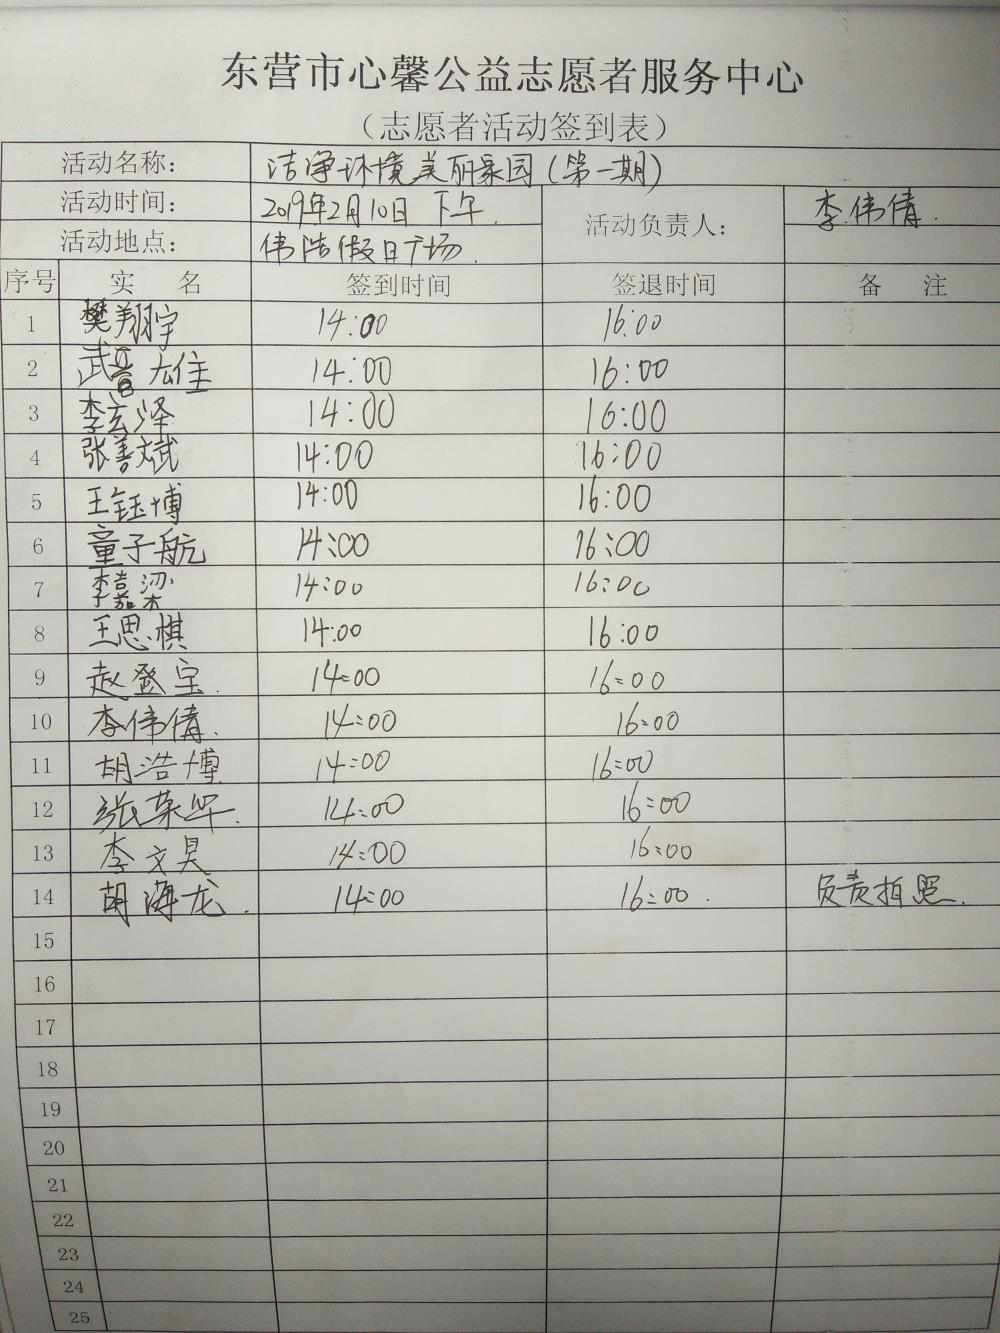 东营市心馨公益志愿者服务中心
（志愿者活动签到表）
活动名称： 洁净环境美丽家园(第一期)
活动时间： 2019年2月10日 下午. 活动负责人： 李伟倩.
活动地点： 伟浩假日广场.
序号 实 名 签到时间 签退时间 备 注
1 樊翔宇 14:00 16:00
2 14:00 16:00
3 李玄泽 14:00 16:00
4 张善斌 14:00 16:00
5 王钰博 14:00 16:00
6 童子航 14:00 16:00
7 李嘉梁 14:00 16:00
8 王思棋 14:00 16:00
9 14:00 16:00
10 李伟倩. 14:00 16:00
11 胡浩博 14:00 16:00
12 张荣华. 14:00 16:00
13 李文昊 14:00 16:00
14 胡海龙. 14:00 16:00. 负责拍照.
15
16
17
18
19
20
21
22
23
24
25